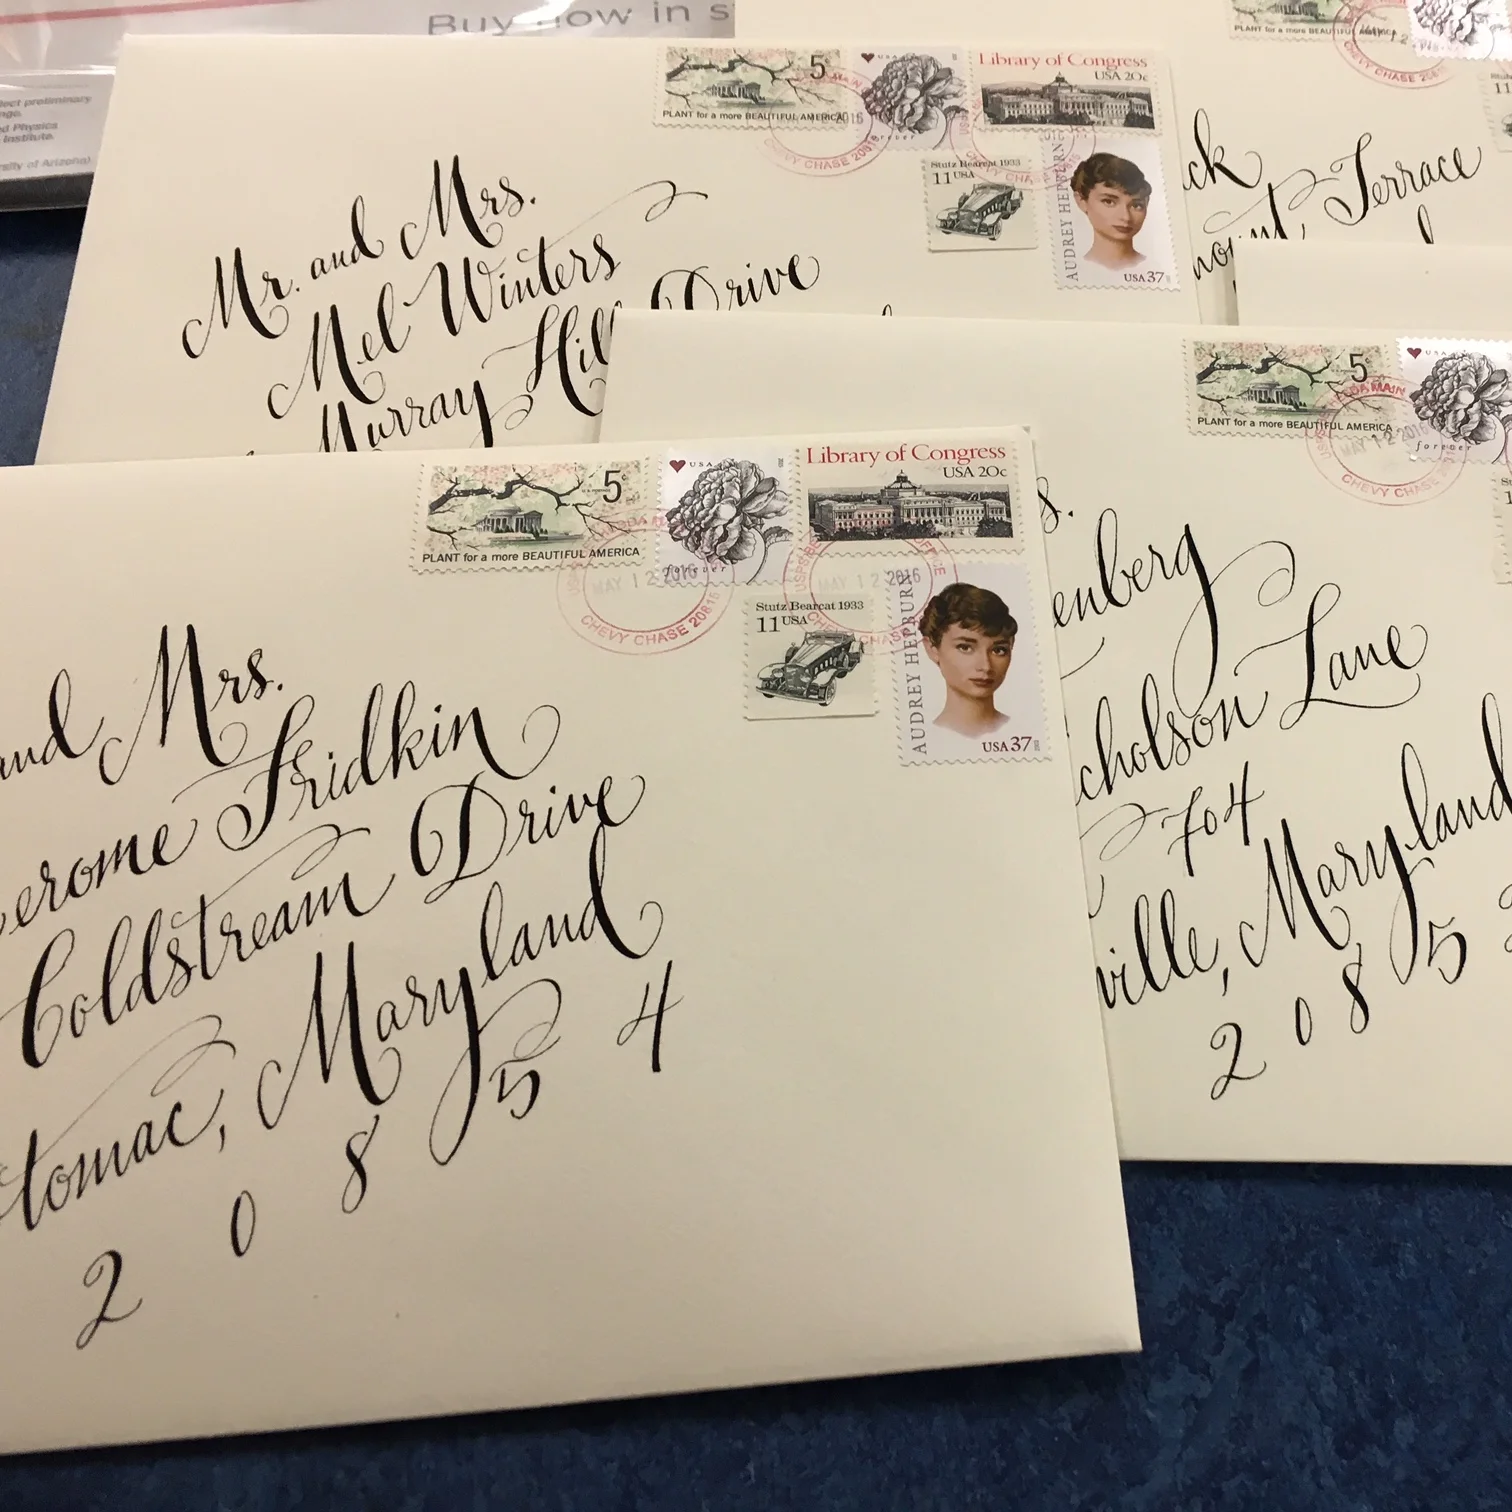 Buy now in s
lect preliminary
nge.
d Physics
Institute.
rsity of Arizona)
5c
PLANT for a more BEAUTIFUL AMERICA
USA
forever
Library of Congress
USA 20c
2016
CHEVY CHASE 20815
Stutz Bearcat 1933
11 USA
AUDREY HEPBURN
USA 37
Mr. and Mrs.
Mel Winters
Murray Hill Drive
PLANT for a more BEAUTIFUL AMERICA
MAY 12
CHEVY CHASE 20815
11
ck
Terrace
5c
PLANT for a more BEAUTIFUL AMERICA
USA
forever
MAY 12 2016
CHEVY CHASE
s.
enberg
cholson Lane
704
ville, Maryland
2 0 8 5 2
5c
PLANT for a more BEAUTIFUL AMERICA
USA
forever
Library of Congress
USA 20c
MAY 12 2016
CHEVY CHASE 20815
MAY 12 2016
CHEVY CHASE
Stutz Bearcat 1933
11 USA
AUDREY HEPBURN
USA 37
and Mrs.
erome Fridkin
Coldstream Drive
tomac, Maryland
2 0 8 5 4